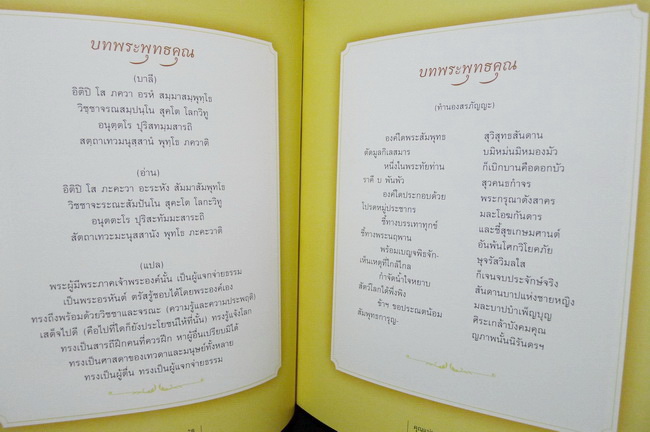 บทพระพุทธคุณ
(บาลี)
อิติปิ โส ภควา อรหํ สมฺมาสมฺพุทฺโธ
วิชฺชาจรณสมฺปนฺโน สุคโต โลกวิทู
อนุตฺตโร ปุริสทมฺมสารถิ
สตฺถาเทวมนุสฺสานํ พุทฺโธ ภควาติ
(อ่าน)
อิติปิ โส ภะคะวา อะระหัง สัมมาสัมพุทโธ
วิชชาจะระณะสัมปันโน สุคะโต โลกะวิทู
อนุตตะโร ปุริสะทัมมะสาระถิ
สัตถาเทวะมะนุสสานัง พุทโธ ภะคะวาติ
(แปล)
พระผู้มีพระภาคเจ้าพระองค์นั้น เป็นผู้แจกจ่ายธรรม
เป็นพระอรหันต์ ตรัสรู้ชอบได้โดยพระองค์เอง
ทรงถึงพร้อมด้วยวิชชาและจรณะ (ความรู้และความประพฤติ)
เสด็จไปดี (คือไปที่ใดก็ยังประโยชน์ให้ที่นั้น) ทรงรู้แจ้งโลก
ทรงเป็นสารถีฝึกคนที่ควรฝึก หาผู้อื่นเปรียบมิได้
ทรงเป็นศาสดาของเทวดาและมนุษย์ทั้งหลาย
ทรงเป็นผู้ตื่น ทรงเป็นผู้แจกจ่ายธรรม
บทพระพุทธคุณ
(ทำนองสรภัญญะ)
องค์ใดพระสัมพุทธ สุวิสุทธสันดาน
ตัดมูลกิเลสมาร บมิหม่นมิหมองมัว
หนึ่งในพระทัยท่าน ก็เบิกบานคือดอกบัว
ราคี บ พันพัว สุวคนธกำจร
องค์ใดประกอบด้วย พระกรุณาดังสาคร
โปรดหมู่ประชากร มละโอฆกันดาร
ชี้ทางบรรเทาทุกข์ และชี้สุขเกษมศานต์
ชี้ทางพระนฤพาน อันพ้นโศกวิโยคภัย
พร้อมเบญจพิธจัก- ษุจรัสวิมลใส
เห็นเหตุที่ใกล้ไกล ก็เจนจบประจักษ์จริง
กำจัดน้ำใจหยาบ สันดานบาปแห่งชายหญิง
สัตว์โลกได้พึ่งพิง มละบาปบำเพ็ญบุญ
ข้าฯ ขอประณตน้อม ศิระเกล้าบังคมคุณ
สัมพุทธการุญ- ญภาพนั้นนิรันดรฯ